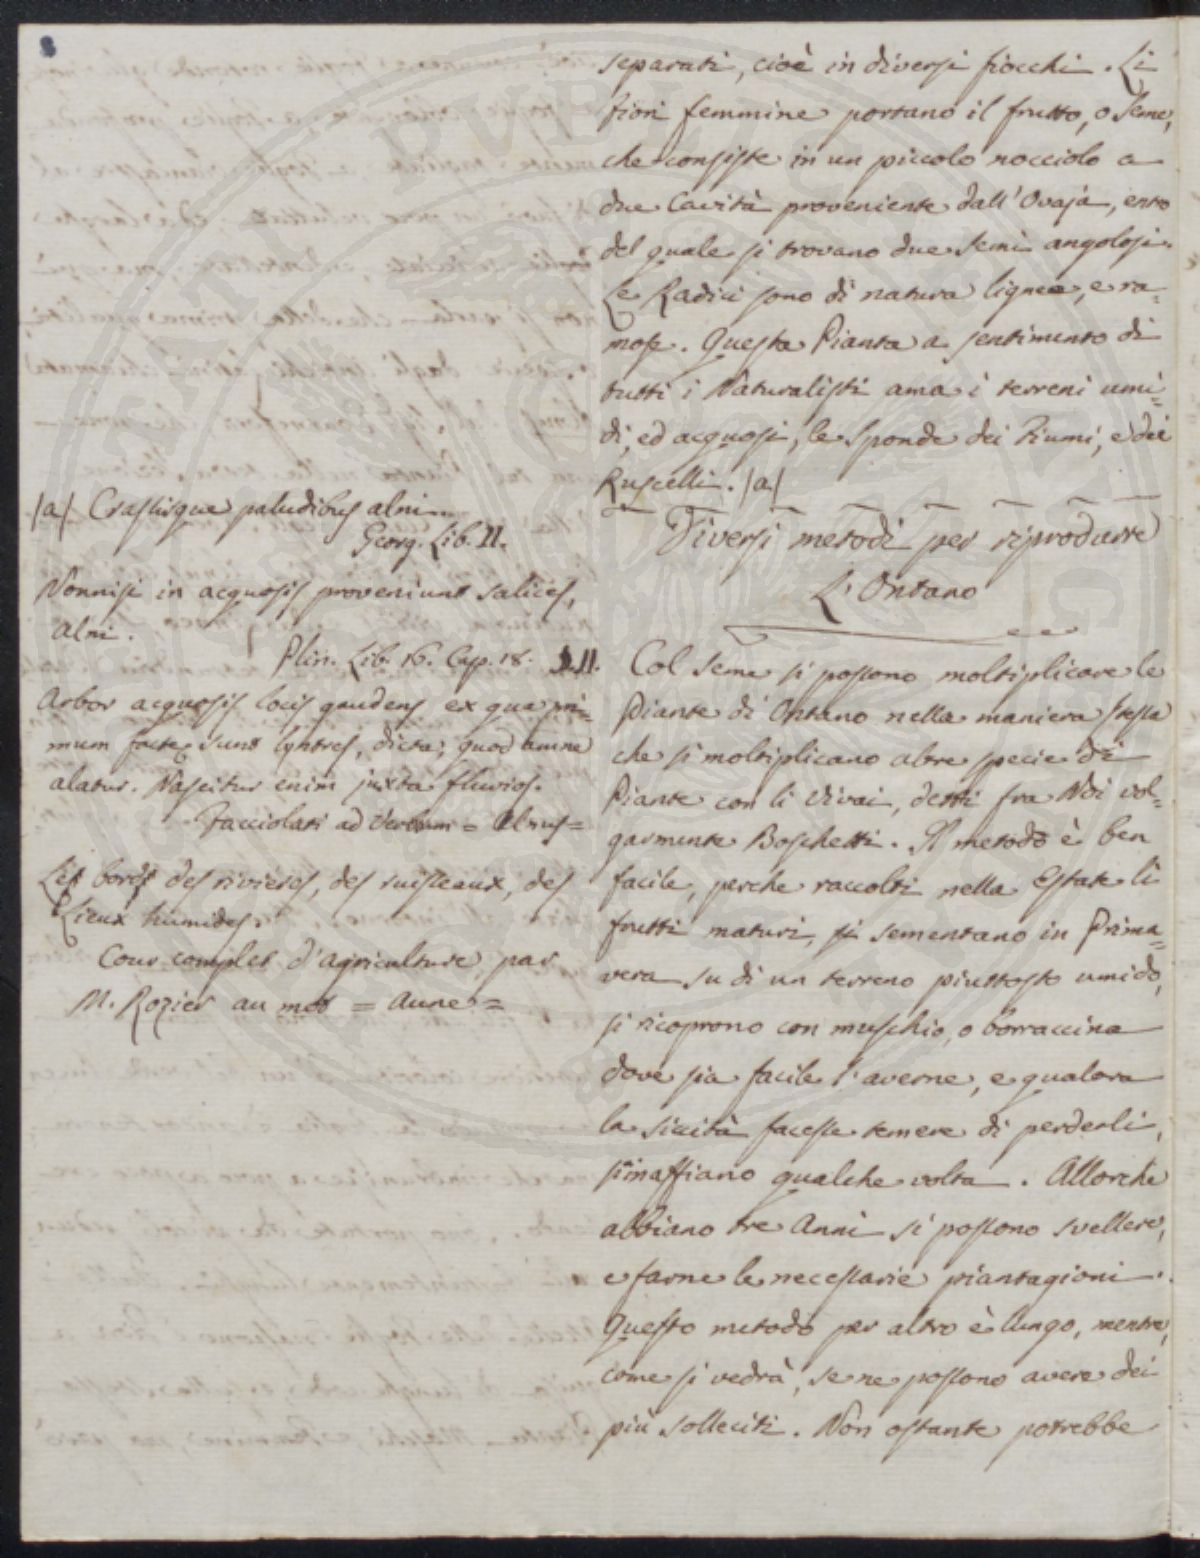 8
separati, cioè in diversi fiocchi. Li
fiori femmine portano il frutto, o seme,
che consiste in un piccolo nocciolo a
due Cavità proveniente dall'Ovaja, ento
del quale si trovano due semi angolosi.
Le Radici sono di natura lignee, e ra=
mose. Questa Pianta a sentimento di
tutti i Naturalisti ama i terreni umi=
di, ed acquosi, le sponde dei Fiumi, e dei
Ruscelli. /a/
Diversi metodi per riprodurre
L'Ontano
Col seme si possono moltiplicare le
Piante di Ontano nella maniera stessa
che si moltiplicano altre specie di
Piante con li Vivai, detti fra Noi vol=
garmente Boschetti. Il metodo è ben
facile, perche raccolti nella Estate li
frutti maturi, si sementano in Prima=
vera su di un terreno piuttosto umido,
si ricoprono con muschio, o borraccina
dove sia facile l'averne, e qualora
la siccità facesse temere di perderli,
s'inaffiano qualche volta. Allorche
abbiano tre Anni si possono svellere,
e farne le necessarie piantagioni.
Questo metodo per altro è lungo, mentre,
come si vedrà, se ne possono avere dei
più solleciti. Non ostante potrebbe
/a/ Crassisque paludibus alni...
Georg. Lib. II.
Nonnisi in acquosis proveniunt salices,
alni.
Plin. Lib. 16. Cap. 18.
Arbor acquosis locis gaudens ex qua pri=
mum factę sunt lyntres, dicta, quod amne
alatur. Nascitur enim juxta fluvios.
Facciolati ad Verbum = Alnus =
Les bords des rivieres, des ruisseaux, des
Lieux humides.
Cour complet d'agriculture par
M. Rozier au mot = Aune =